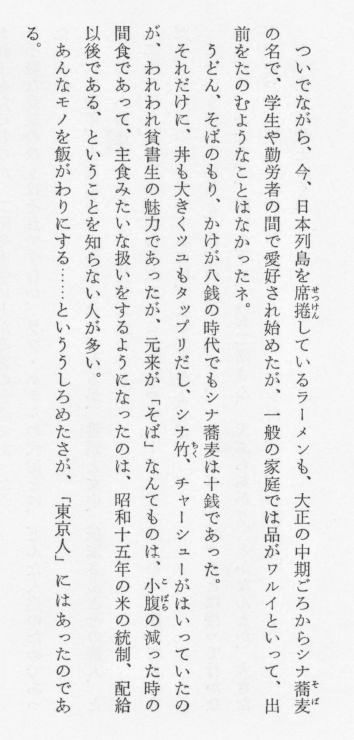 ついでながら、今、日本列島を席捲しているラーメンも、大正の中期ごろからシナ蕎麦
の名で、学生や勤労者の間で愛好され始めたが、一般の家庭では品がワルイといって、出
前をたのむようなことはなかったネ。
うどん、そばのもり、かけが八銭の時代でもシナ蕎麦は十銭であった。
それだけに、丼も大きくツユもタップリだし、シナ竹、チャーシューがはいっていたの
が、われわれ貧書生の魅力であったが、元来が「そば」なんてものは、小腹の減った時の
間食であって、主食みたいな扱いをするようになったのは、昭和十五年の米の統制、配給
以後である、ということを知らない人が多い。
あんなモノを飯がわりにする……といううしろめたさが、「東京人」にはあったのであ
る。